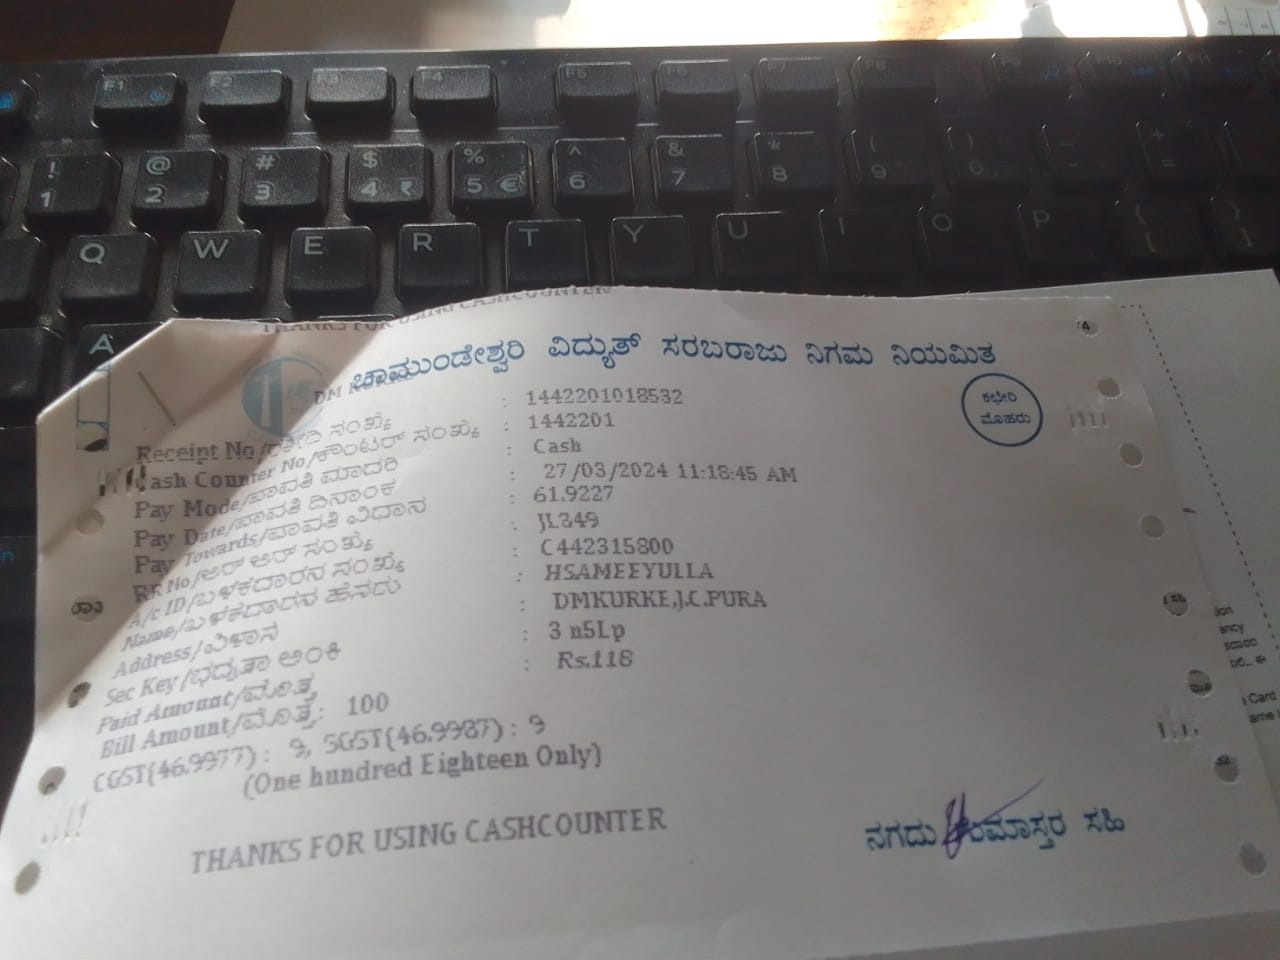 F1 F2 F3 F4 F5 F6 F7 F8 F9 F10 F11
! 1 @ 2 # 3 $ 4 ₹ % 5 € ^ 6 & 7 * 8 ( 9 ) 0 _ - + =
Q W E R T Y U I O P { [ } ]
A
THANKS FOR USING CASHCOUNTER
ಚಾಮುಂಡೇಶ್ವರಿ ವಿದ್ಯುತ್ ಸರಬರಾಜು ನಿಗಮ ನಿಯಮಿತ
DM
ಕಛೇರಿ
ಮೊಹರು
Receipt No/ರಶೀದಿ ಸಂಖ್ಯೆ : 1442201018532
Cash Counter No/ಕೌಂಟರ್ ಸಂಖ್ಯೆ : 1442201
Pay Mode/ಪಾವತಿ ಮಾದರಿ : Cash
Pay Date/ಪಾವತಿ ದಿನಾಂಕ : 27/03/2024 11:18:45 AM
Pay Towards/ಪಾವತಿ ವಿಧಾನ : 61.9227
RR No/ಆರ್ ಆರ್ ಸಂಖ್ಯೆ : JL349
A/c ID/ಬಳಕೆದಾರನ ಸಂಖ್ಯೆ : C442315800
Name/ಬಳಕೆದಾರನ ಹೆಸರು : HSAMEEYULLA
Address/ವಿಳಾಸ : DMKURKE,J.C.PURA
Sec Key/ಭದ್ರತಾ ಅಂಕಿ : 3 n5Lp
Paid Amount/ಮೊತ್ತ : Rs.118
Bill Amount/ಮೊತ್ತ: 100
CGST(46.9977) : 9, SGST(46.9987) : 9
(One hundred Eighteen Only)
THANKS FOR USING CASHCOUNTER
ನಗದು ಸಹಿ